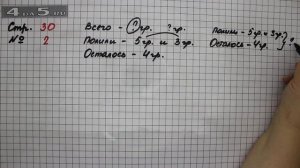 4 ДА 5.RU
Стр. 30
№ 2
Всего - ? гр. ? гр.
Полили - 5 гр. и 3 гр.
Осталось - 4 гр.
Полили - 5 гр. и 3 гр.
Осталось - 4 гр. ?